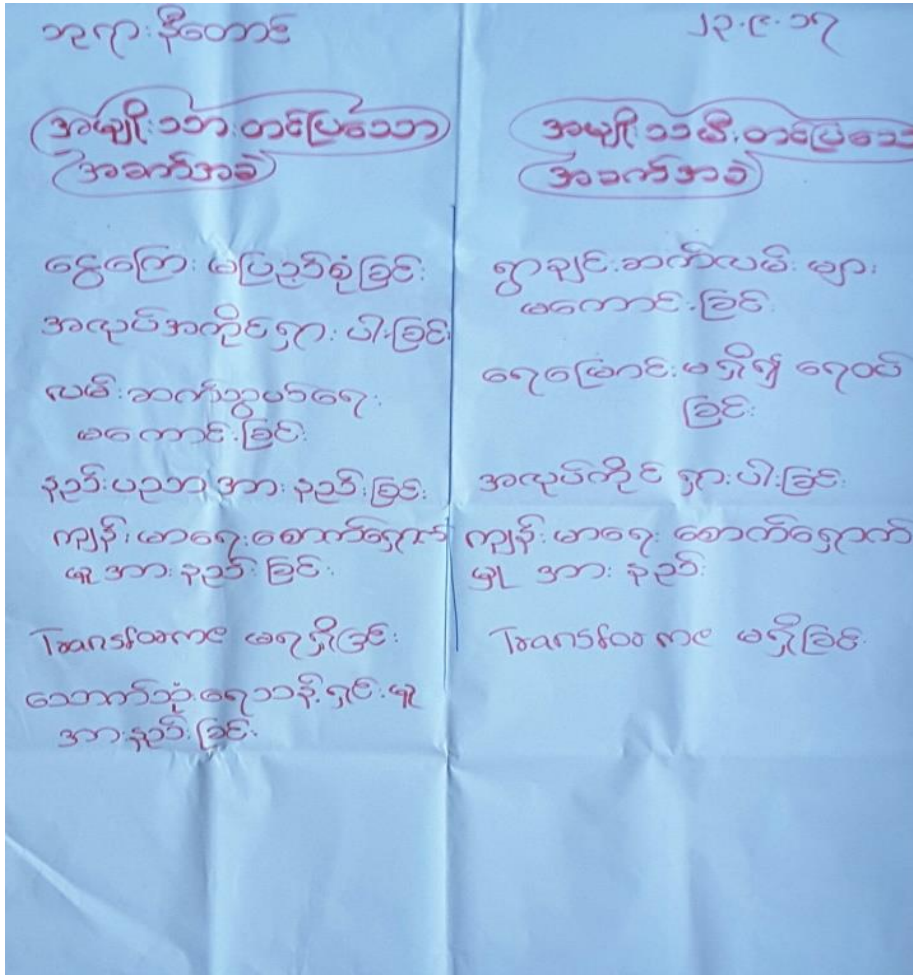 ဘုရားနီတောင်
၂၃.၉.၁၇
အမျိုးသားတင်ပြသော
အခက်အခဲ
ငွေကြေး မပြည့်စုံခြင်း
အလုပ်အကိုင်ရှားပါးခြင်း
လမ်းဆက်သွယ်ရေး
မကောင်းခြင်း
နည်းပညာ အားနည်းခြင်း
ကျန်းမာရေးစောက်ရှောက်
မှု အားနည်းခြင်း
Transforme မရရှိခြင်း
သောက်သုံးရေသန့်ရှင်းမှု
အားနည်းခြင်း
အမျိုးသမီးတင်ပြသော
အခက်အခဲ
ရွာချင်းဆက်လမ်းများ
မကောင်းခြင်း
ရေမြောင်းမရှိ၍ ရေဝပ်
ခြင်း
အလုပ်ကိုင် ရှားပါးခြင်း
ကျန်းမာရေး စောက်ရှောက်
မှု အားနည်း
Transforme မရှိခြင်း